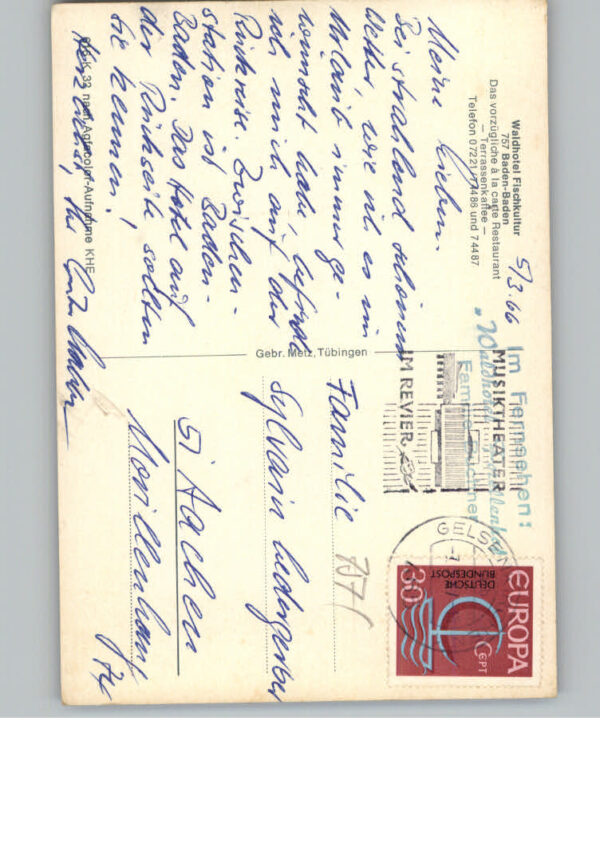 Waldhotel Fischkultur
757 Baden-Baden
Das vorzügliche à la carte Restaurant
— Terrassenkaffee —
Telefon 07221/74486 und 74487
5/3.66
Meine Lieben.
Bei strahlend schönem
Wetter, wie ich es im
Urlaub immer ge-
wünscht habe, befinde
ich mich auf der
Rückreise. Zwischen-
station ist Baden-
Baden. Das Hotel auf
der Rückseite sollten
Sie kennen!
Herzlichst, Ihr
K 33 nach Agfacolor-Aufnahme KHE
Gebr. Metz, Tübingen
Im Fernsehen:
"Waldhotel
Familie
MUSIKTHEATER
IM REVIER
GELSEN
EUROPA
CEPT
DEUTSCHE
BUNDESPOST
30
Familie
Sylvain Ludergerber
757
51 Aachen
Morillenhang